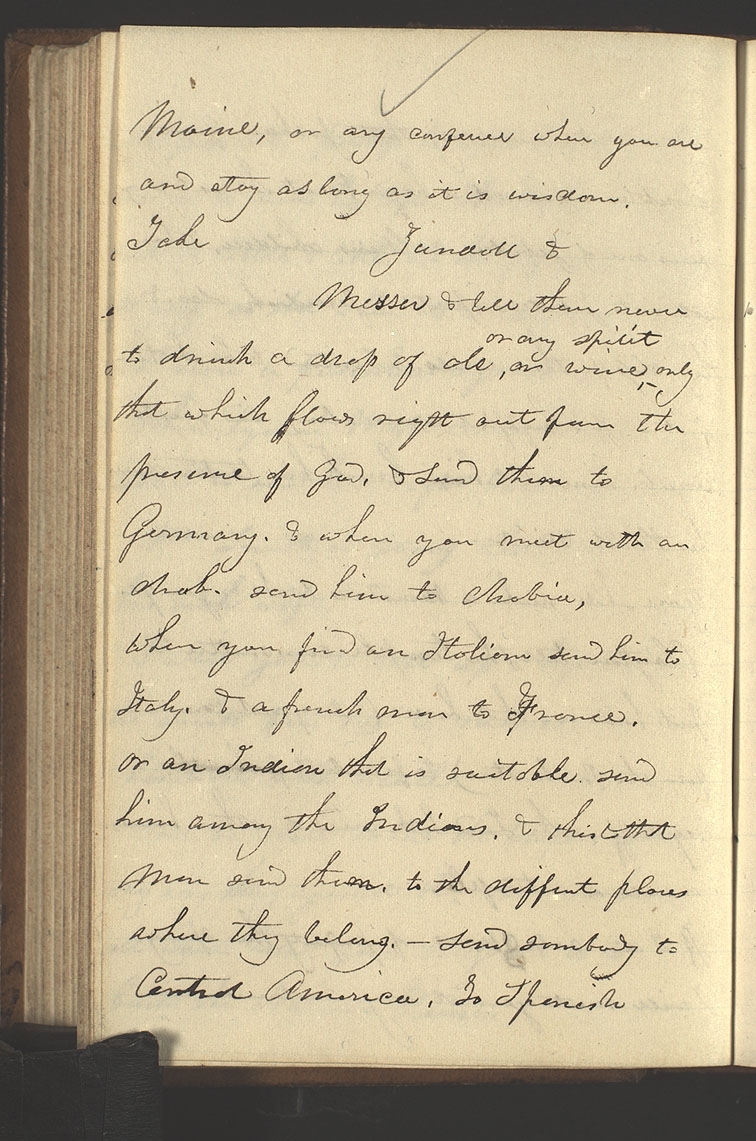 Maine, or any conferece when you are
and stay as long as it is wisdom.
Take Jundoll &
Messer & tell them never
or any spirit
to drink a drop of ale, or wine, only
that which flows right out from the
presence of God. & send them to
Germany. & when you meet with an
Arab. send him to Arabia,
when you find an Italian send him to
Italy. & a french man to France.
or an Indian that is suitable. send
him among the Indians. & this & that
man send them. to the diffrent places
where they belong. — Send sombody to
Central America, To Spanish